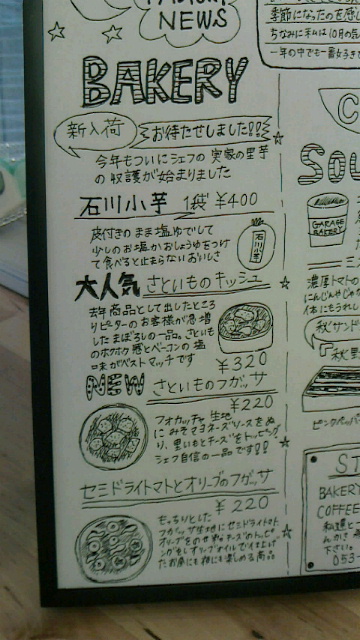 NEWS
BAKERY
新入荷
お待たせしました!!
今年もついにシェフの 実家の里芋
の 収穫が始まりました
石川小芋 1袋 ¥400
皮付きのまま塩ゆでして
少しのお塩かおしょうゆをつけ
て食べると止まらないおいしさ
石川小芋
大人気 さといものキッシュ
去年商品として出したところ
リピーターのお客様が急増
したまぼろしの一品。さといも
のホクホク感とベーコンの塩
味がベストマッチです
¥320
NEW さといものフガッサ
¥220
フォカッチャ生地
にみそマヨネーズソースをぬ
り、里いもとチーズをトッピング
シェフ自信の一品です!!
セミドライトマトとオリーブのフガッサ
¥220
もっちりとした
フガッサ生地にセミドライトマト
季節になったのを感
ちなみに私は10月の気
一年の中でも一番好き
C
SOU
GARAGE
BAKERY
濃厚トマトの
にんじん
体にもうれし
秋サンド
秋野
ピンクペッパー
ST
BAKERY
COFFEE
下さい。
053-